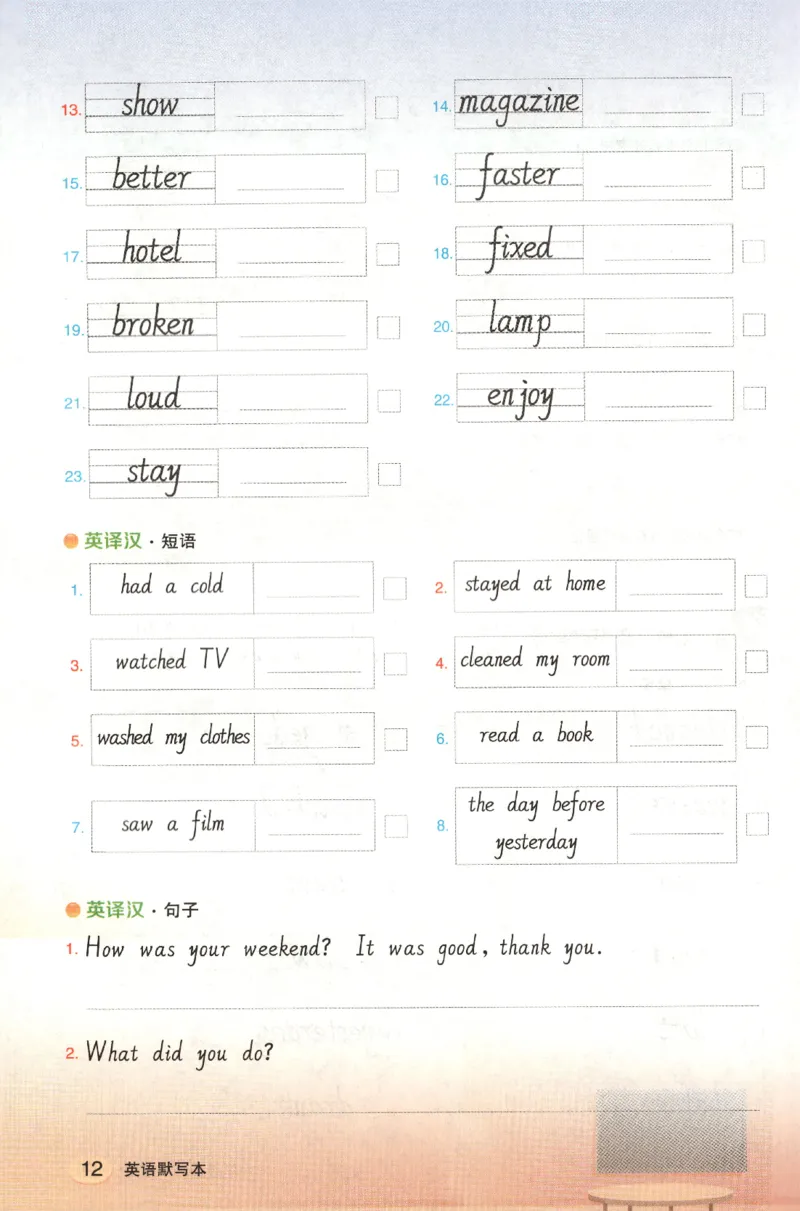 13. show
14. magazine
15. better
16. faster
17. hotel
18. fixed
19. broken
20. lamp
21. loud
22. enjoy
23. stay
英译汉·短语
1. had a cold
2. stayed at home
3. watched TV
4. cleaned my room
5. washed my clothes
6. read a book
7. saw a film
8. the day before
yesterday
英译汉·句子
1. How was your weekend? It was good, thank you.
2. What did you do?
12 英语默写本